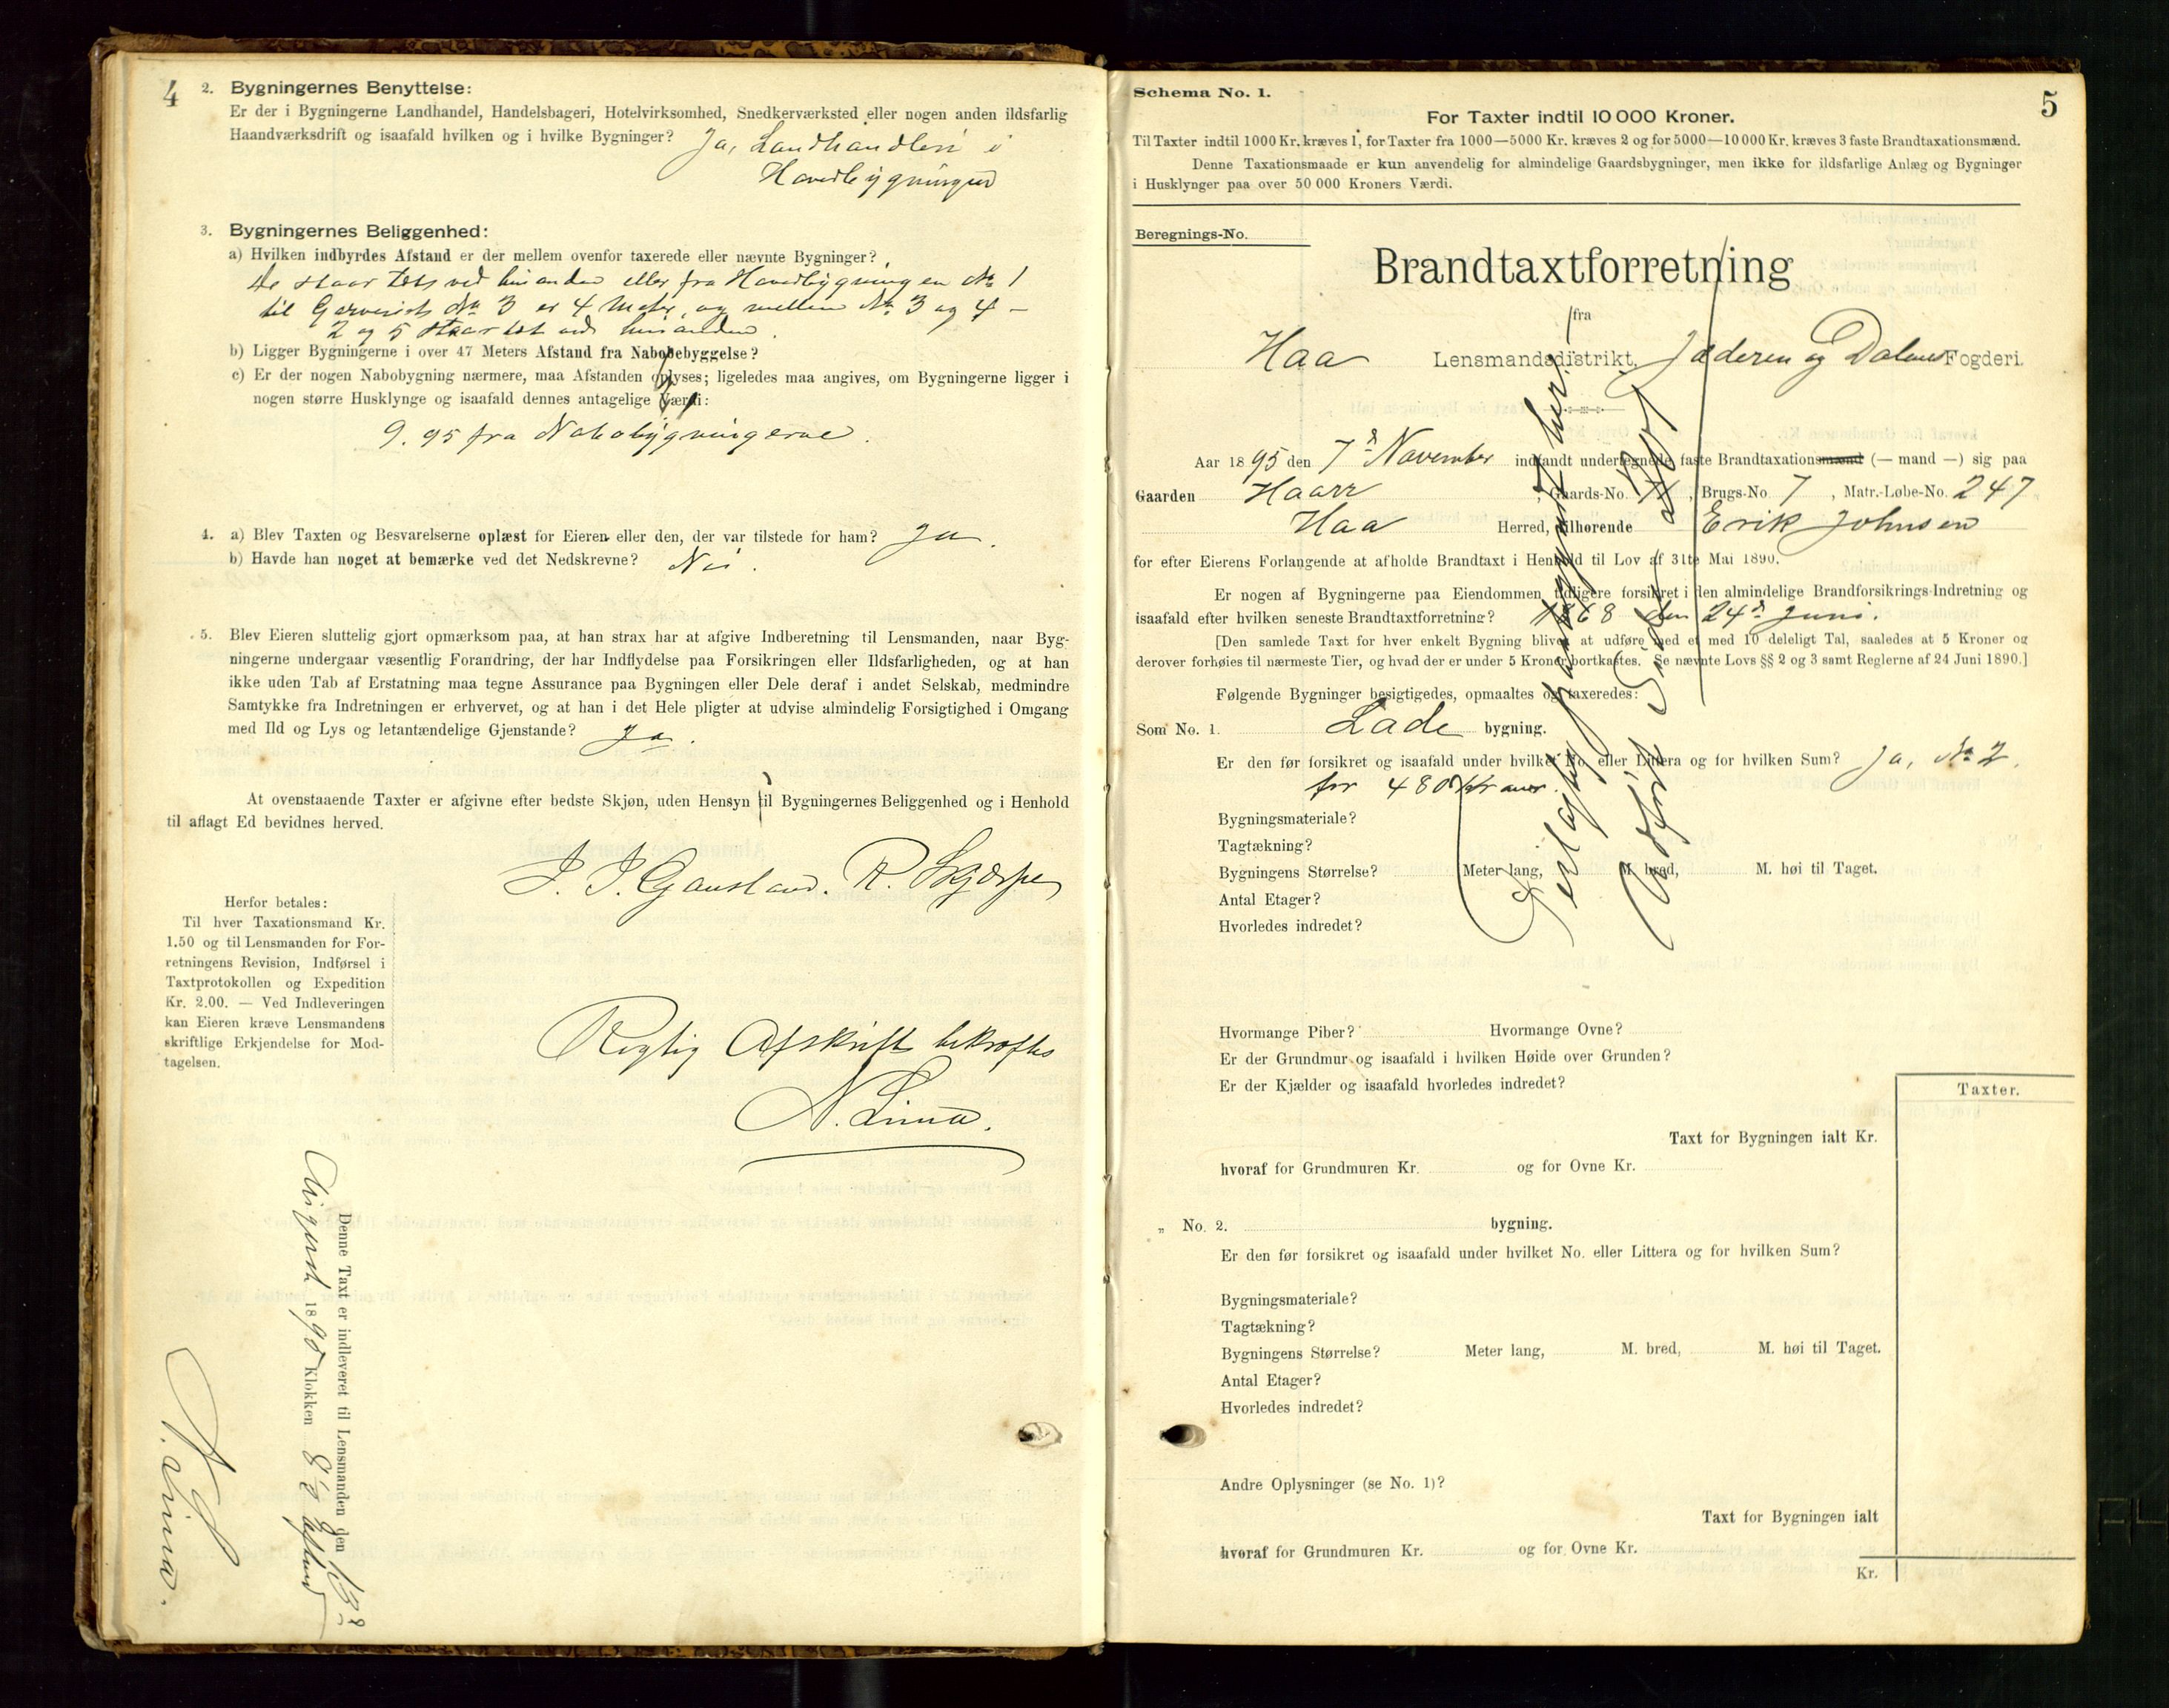 4
2. Bygningernes Benyttelse:
Er der i Bygningerne Landhandel, Handelsbageri, Hotelvirksomhed, Snedkerværksted eller nogen anden ildsfarlig
Haandværksdrift og isaafald hvilken og i hvilke Bygninger? Ja, Landhandleri i
Hovedbygningen
3. Bygningernes Beliggenhed:
a) Hvilken indbyrdes Afstand er der mellem ovenfor taxerede eller nævnte Bygninger?
De staar tæt ved hinanden eller fra Hovedbygningen No 1
til Garveriets No 3 er 4 Meter, og mellem No 3 og 4 –
2 og 5 staar tæt ved hinanden.
b) Ligger Bygningerne i over 47 Meters Afstand fra Nabobebyggelse?
c) Er der nogen Nabobygning nærmere, maa Afstanden oplyses; ligeledes maa angives, om Bygningerne ligger i
nogen større Husklynge og isaafald dennes antagelige Værdi:
9.95 fra Nabobygningerne.
4. a) Blev Taxten og Besvarelserne oplæst for Eieren eller den, der var tilstede for ham? Ja.
b) Havde han noget at bemærke ved det Nedskrevne? Nei.
5. Blev Eieren sluttelig gjort opmærksom paa, at han strax har at afgive Indberetning til Lensmanden, naar Byg-
ningerne undergaar væsentlig Forandring, der har Indflydelse paa Forsikringen eller Ildsfarligheden, og at han
ikke uden Tab af Erstatning maa tegne Assurance paa Bygningen eller Dele deraf i andet Selskab, medmindre
Samtykke fra Indretningen er erhvervet, og at han i det Hele pligter at udvise almindelig Forsigtighed i Omgang
med Ild og Lys og letantændelige Gjenstande? Ja.
At ovenstaaende Taxter er afgivne efter bedste Skjøn, uden Hensyn til Bygningernes Beliggenhed og i Henhold
til aflagt Ed bevidnes herved.
J. J. Gausland. R. Skjærpe
Herfor betales:
Til hver Taxationsmand Kr.
1.50 og til Lensmanden for For-
retningens Revision, Indførsel i
Taxtprotokollen og Expedition
Kr. 2.00. — Ved Indleveringen
kan Eieren kræve Lensmandens
skriftlige Erkjendelse for Mod-
tagelsen.
Rigtig Afskrift bekræftes
N. Lima.
Denne Taxt er indleveret til Lensmanden den 13de
August 1898 Klokken 8 Eftmd
N. Lima.
5
Schema No. 1.
For Taxter indtil 10 000 Kroner.
Til Taxter indtil 1000 Kr. kræves 1, for Taxter fra 1000—5000 Kr. kræves 2 og for 5000—10 000 Kr. kræves 3 faste Brandtaxationsmænd.
Denne Taxationsmaade er kun anvendelig for almindelige Gaardsbygninger, men ikke for ildsfarlige Anlæg og Bygninger
i Husklynger paa over 50 000 Kroners Værdi.
Beregnings-No.
Brandtaxtforretning
fra
Haa Lensmandsdistrikt, Jæderen og Dalene Fogderi.
Aar 1895 den 7d November indfandt undertegnede faste Brandtaxationsmænd (— mand —) sig paa
Gaarden Haarr, Gaards-No. 11, Brugs-No. 7, Matr.-Løbe-No. 247
Haa Herred, tilhørende Erik Johnsen
for efter Eierens Forlangende at afholde Brandtaxt i Henhold til Lov af 31te Mai 1890.
Er nogen af Bygningerne paa Eiendommen tidligere forsikret i den almindelige Brandforsikrings-Indretning og
isaafald efter hvilken seneste Brandtaxtforretning? 1868 den 24d Juni.
[Den samlede Taxt for hver enkelt Bygning bliver at udføre med et med 10 deleligt Tal, saaledes at 5 Kroner og
derover forhøies til nærmeste Tier, og hvad der er under 5 Kroner bortkastes. Se nævnte Lovs §§ 2 og 3 samt Reglerne af 24 Juni 1890.]
Følgende Bygninger besigtigedes, opmaaltes og taxeredes:
Som No. 1. Lade bygning.
Er den før forsikret og isaafald under hvilket No. eller Littera og for hvilken Sum? Ja, No 2.
for 480 Kroner.
Bygningsmateriale?
Tagtækning?
Bygningens Størrelse? Meter lang, M. bred, M. høi til Taget.
Antal Etager?
Hvorledes indredet?
Hvormange Piber? Hvormange Ovne?
Er der Grundmur og isaafald i hvilken Høide over Grunden?
Er der Kjælder og isaafald hvorledes indredet?
Taxter.
Taxt for Bygningen ialt Kr.
hvoraf for Grundmuren Kr. og for Ovne Kr.
„ No. 2. bygning.
Er den før forsikret og isaafald under hvilket No. eller Littera og for hvilken Sum?
Bygningsmateriale?
Tagtækning?
Bygningens Størrelse? Meter lang, M. bred, M. høi til Taget.
Antal Etager?
Hvorledes indredet?
Andre Oplysninger (se No. 1)?
Taxt for Bygningen ialt
hvoraf for Grundmuren Kr. og for Ovne Kr.
Kr.
Feilagtig begyndt her.
Udført